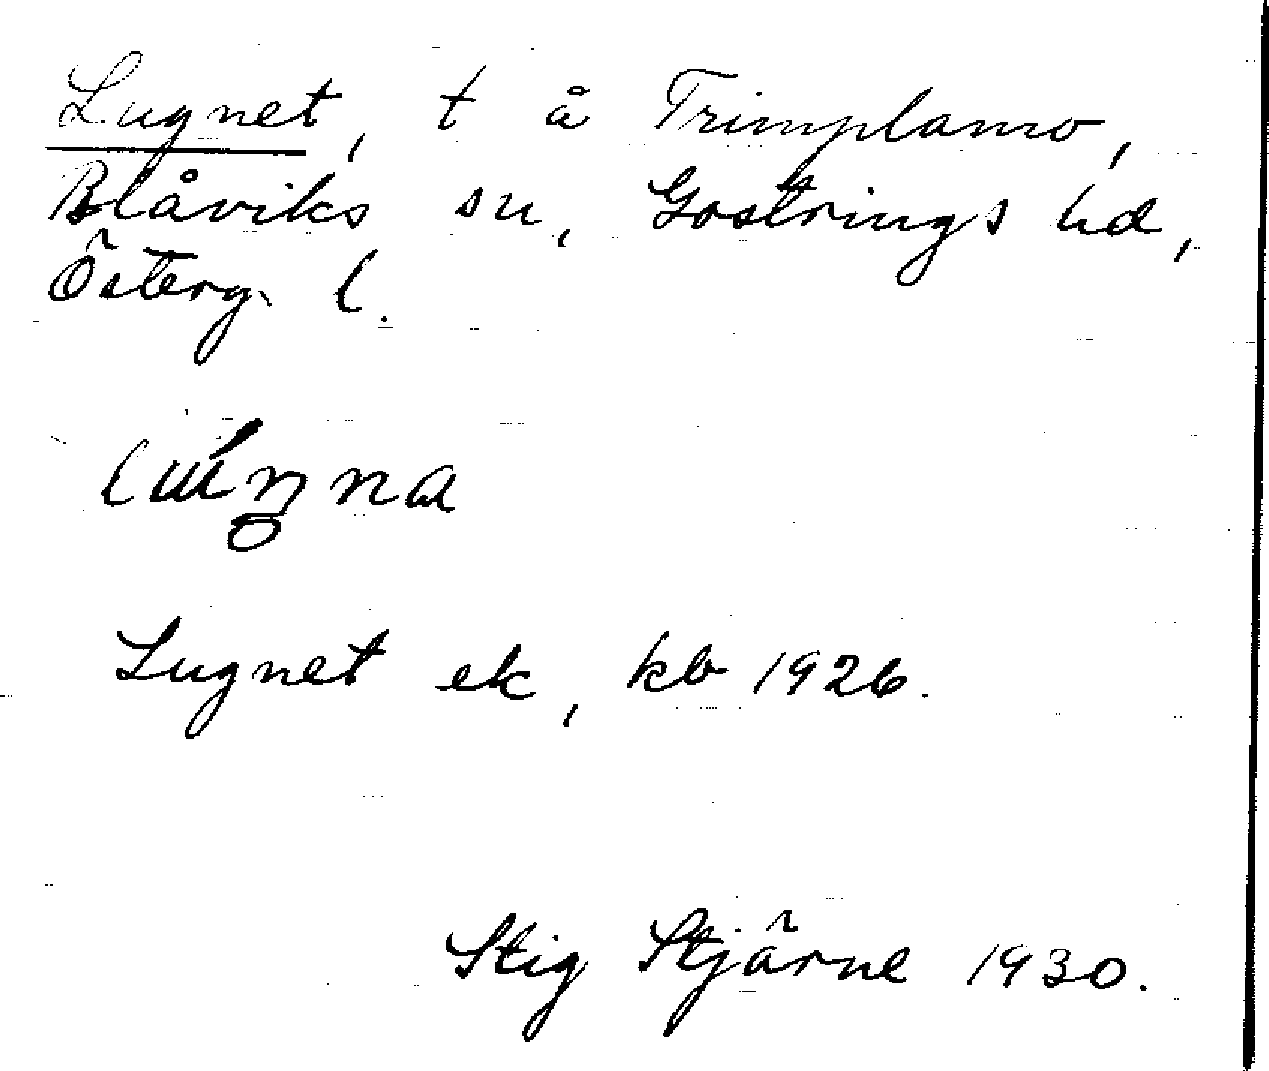 Lugnet, t å Trimplamo,
Blåviks sn, Göstrings hd,
Österg. l.
Lugnet ek, kb 1926.
Stig Stjärne 1930.